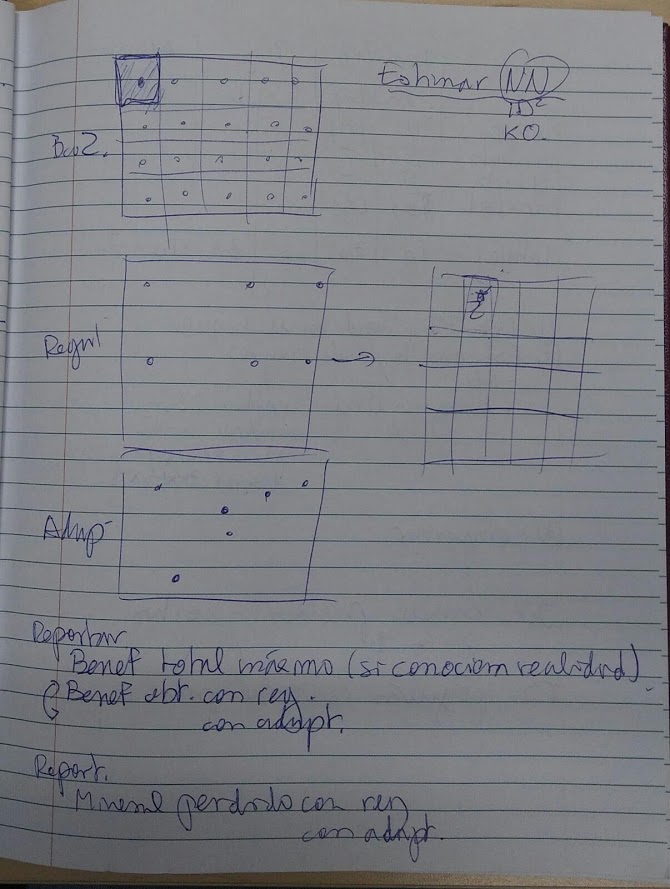 Estimar NN
ID²
KO.
Regul
Adap
Reportar
Benef total máximo (si conocieran realidad)
Benef obt. con reg.
con adapt.
Report.
Mineral perdido con reg
con adapt.